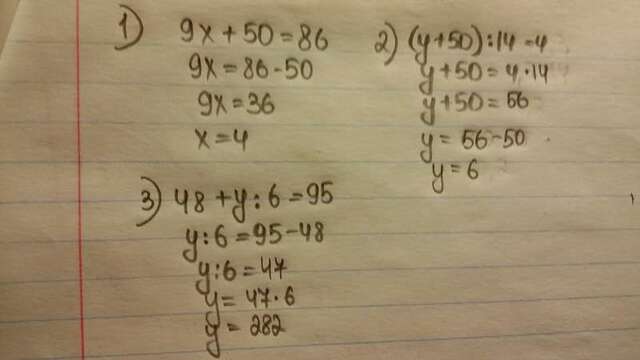 1) 9x+50=86
9x=86-50
9x=36
x=4
2) (y+50):14=4
y+50=4·14
y+50=56
y=56-50
y=6
3) 48+y:6=95
y:6=95-48
y:6=47
y=47·6
y=282